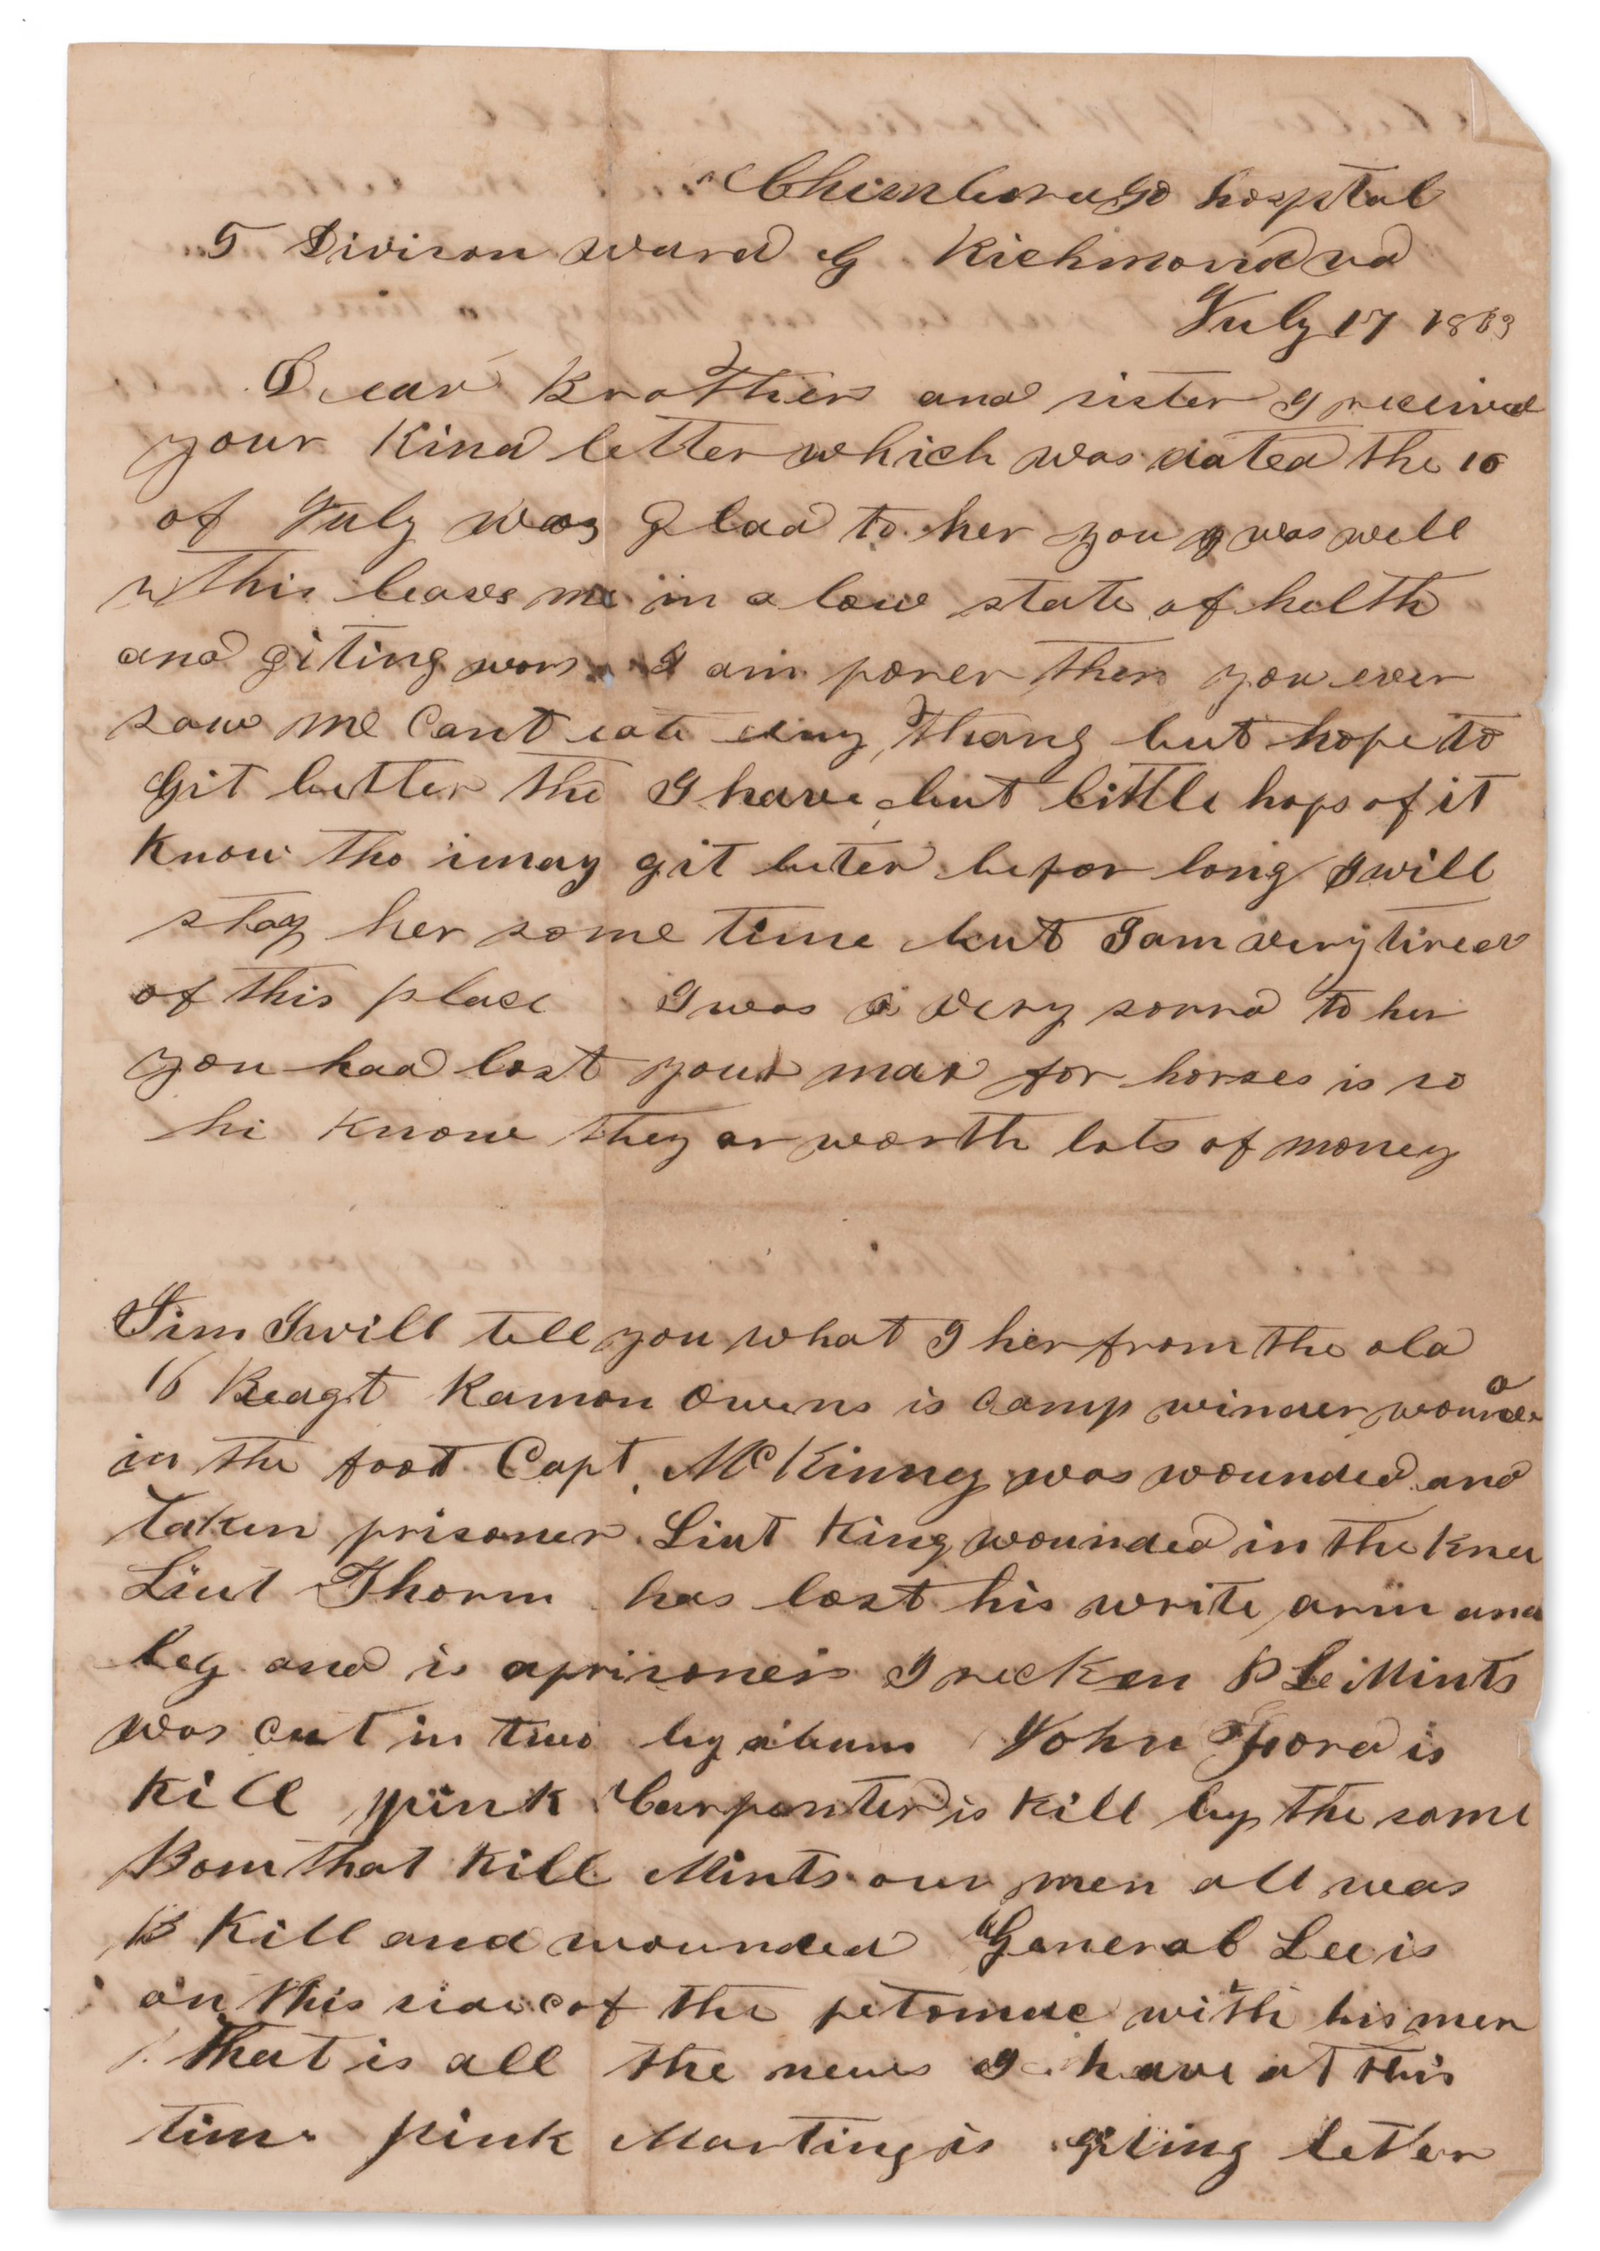 Chimborazo hospital
5 Divison ward G Richmond va
July 17 1863
Dear Brother and sister I received
your Kind letter which was dated the 10
of July was glad to her you was well
this leaves me in a low state of helth
and giting wors I am porer then you ever
saw me Cant eate any thang but hope to
Git better tho I have but little hops of it
Know tho i may git beter befor long I will
stay her some time but I am very tired
of this place I was very sorra to her
you had lost your mar for horses is so
hi Know they ar worth lots of money
Jim I will tell you what I her from the old
16 Reagt Ramon Owens is camp winder wounded
in the foot Capt McKinny was wounded and
taken prisoner Liut King wounded in the Knee
Liut Thorn has lost his write arm and
leg and is a prisoner I recken P Le Mints
was cut in two by a bum John Ford is
Kill pink Carpenter is Kill by the same
Bom that Kill Mints our men all was
Kill and wounded General Lee is
on this side of the petomac with his men
that is all the news I have at this
time pink Marting is giting better